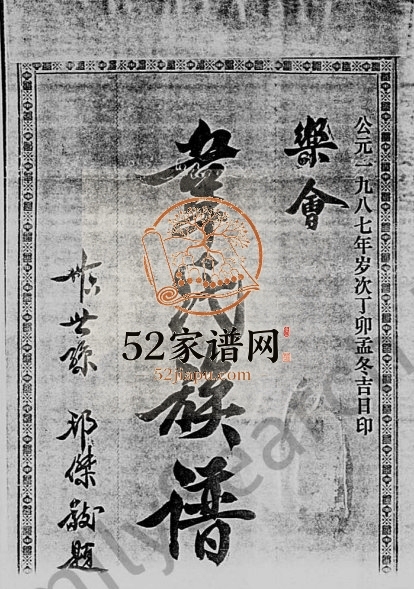 公元一九八七年岁次丁卯孟冬吉日印
樂會
氏族谱
世孫 邦傑敬題
52家谱网
52jiapu.com